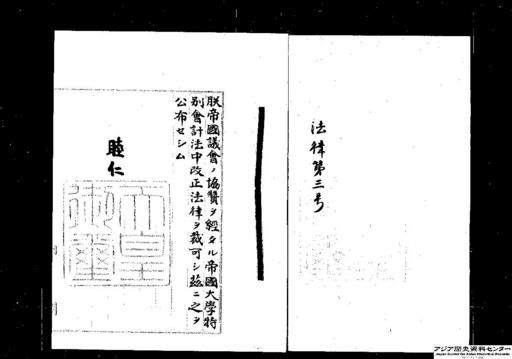 法律第三号
朕帝國議會ノ協贊ヲ經タル帝國大學特
別會計法中改正法律ヲ裁可シ茲ニ之ヲ
公布セシム
睦仁
天皇
御璽
アジア歴史資料センター
Japan Center for Asian Historical Records